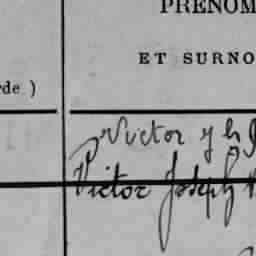 PRENOM
ET SURNO
rde )
Victor
Victor Joseph